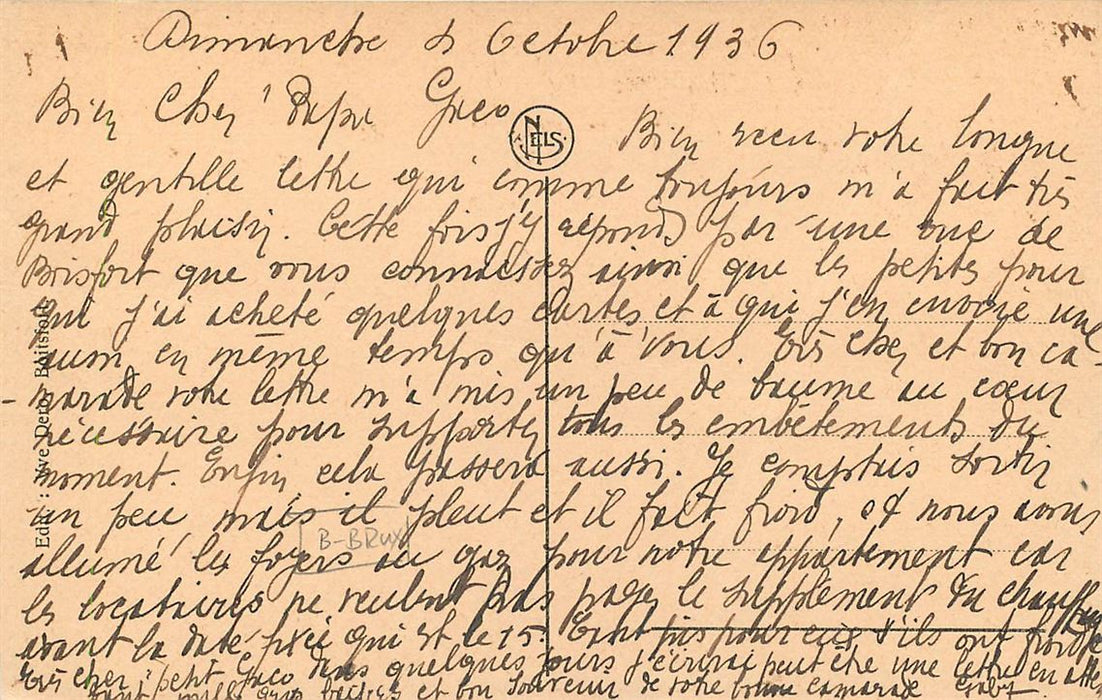 Dimanche 4 Octobre 1936
Bien Cher Papa Gaco
NELS
Bien reçu votre longue
et gentille lettre qui comme toujours m'a fait très
grand plaisir. Cette fois j'y réponds par une vue de
Boisfort que vous connaissez ainsi que les petites pour
qui j'ai acheté quelques cartes et à qui j'en envoie une
aussi en même temps qu'à vous. Très cher et bon ca-
-marade votre lettre m'a mis un peu de baume au cœur
nécessaire pour supporter tous les embêtements du
moment. Enfin cela passera aussi. Je comptais sortir
un peu, mais il pleut et il fait froid, et nous avons
allumé les foyers au gaz pour notre appartement car
les locataires ne veulent pas payer le supplément du chauffage
avant la date fixée qui est le 15. Tant pis pour eux s'ils ont froid
Très cher petit Gaco dans quelques jours j'écrirai peut être une lettre en atten
dant mille gros baisers et bon souvenir de votre bonne camarade
Edit : Vve Deroy, Boitsfort
B-BRUX